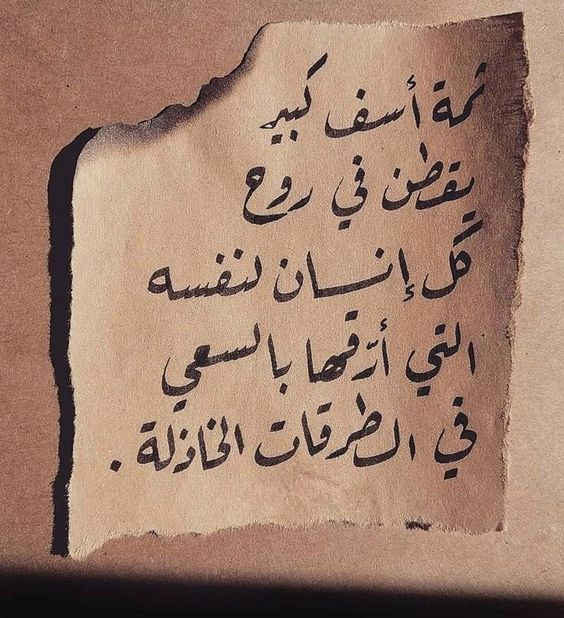 ثمة أسف كبير
يقطن في روح
كل إنسان لنفسه
التي أرّقها بالسعي
في الطرقات الخاذلة .